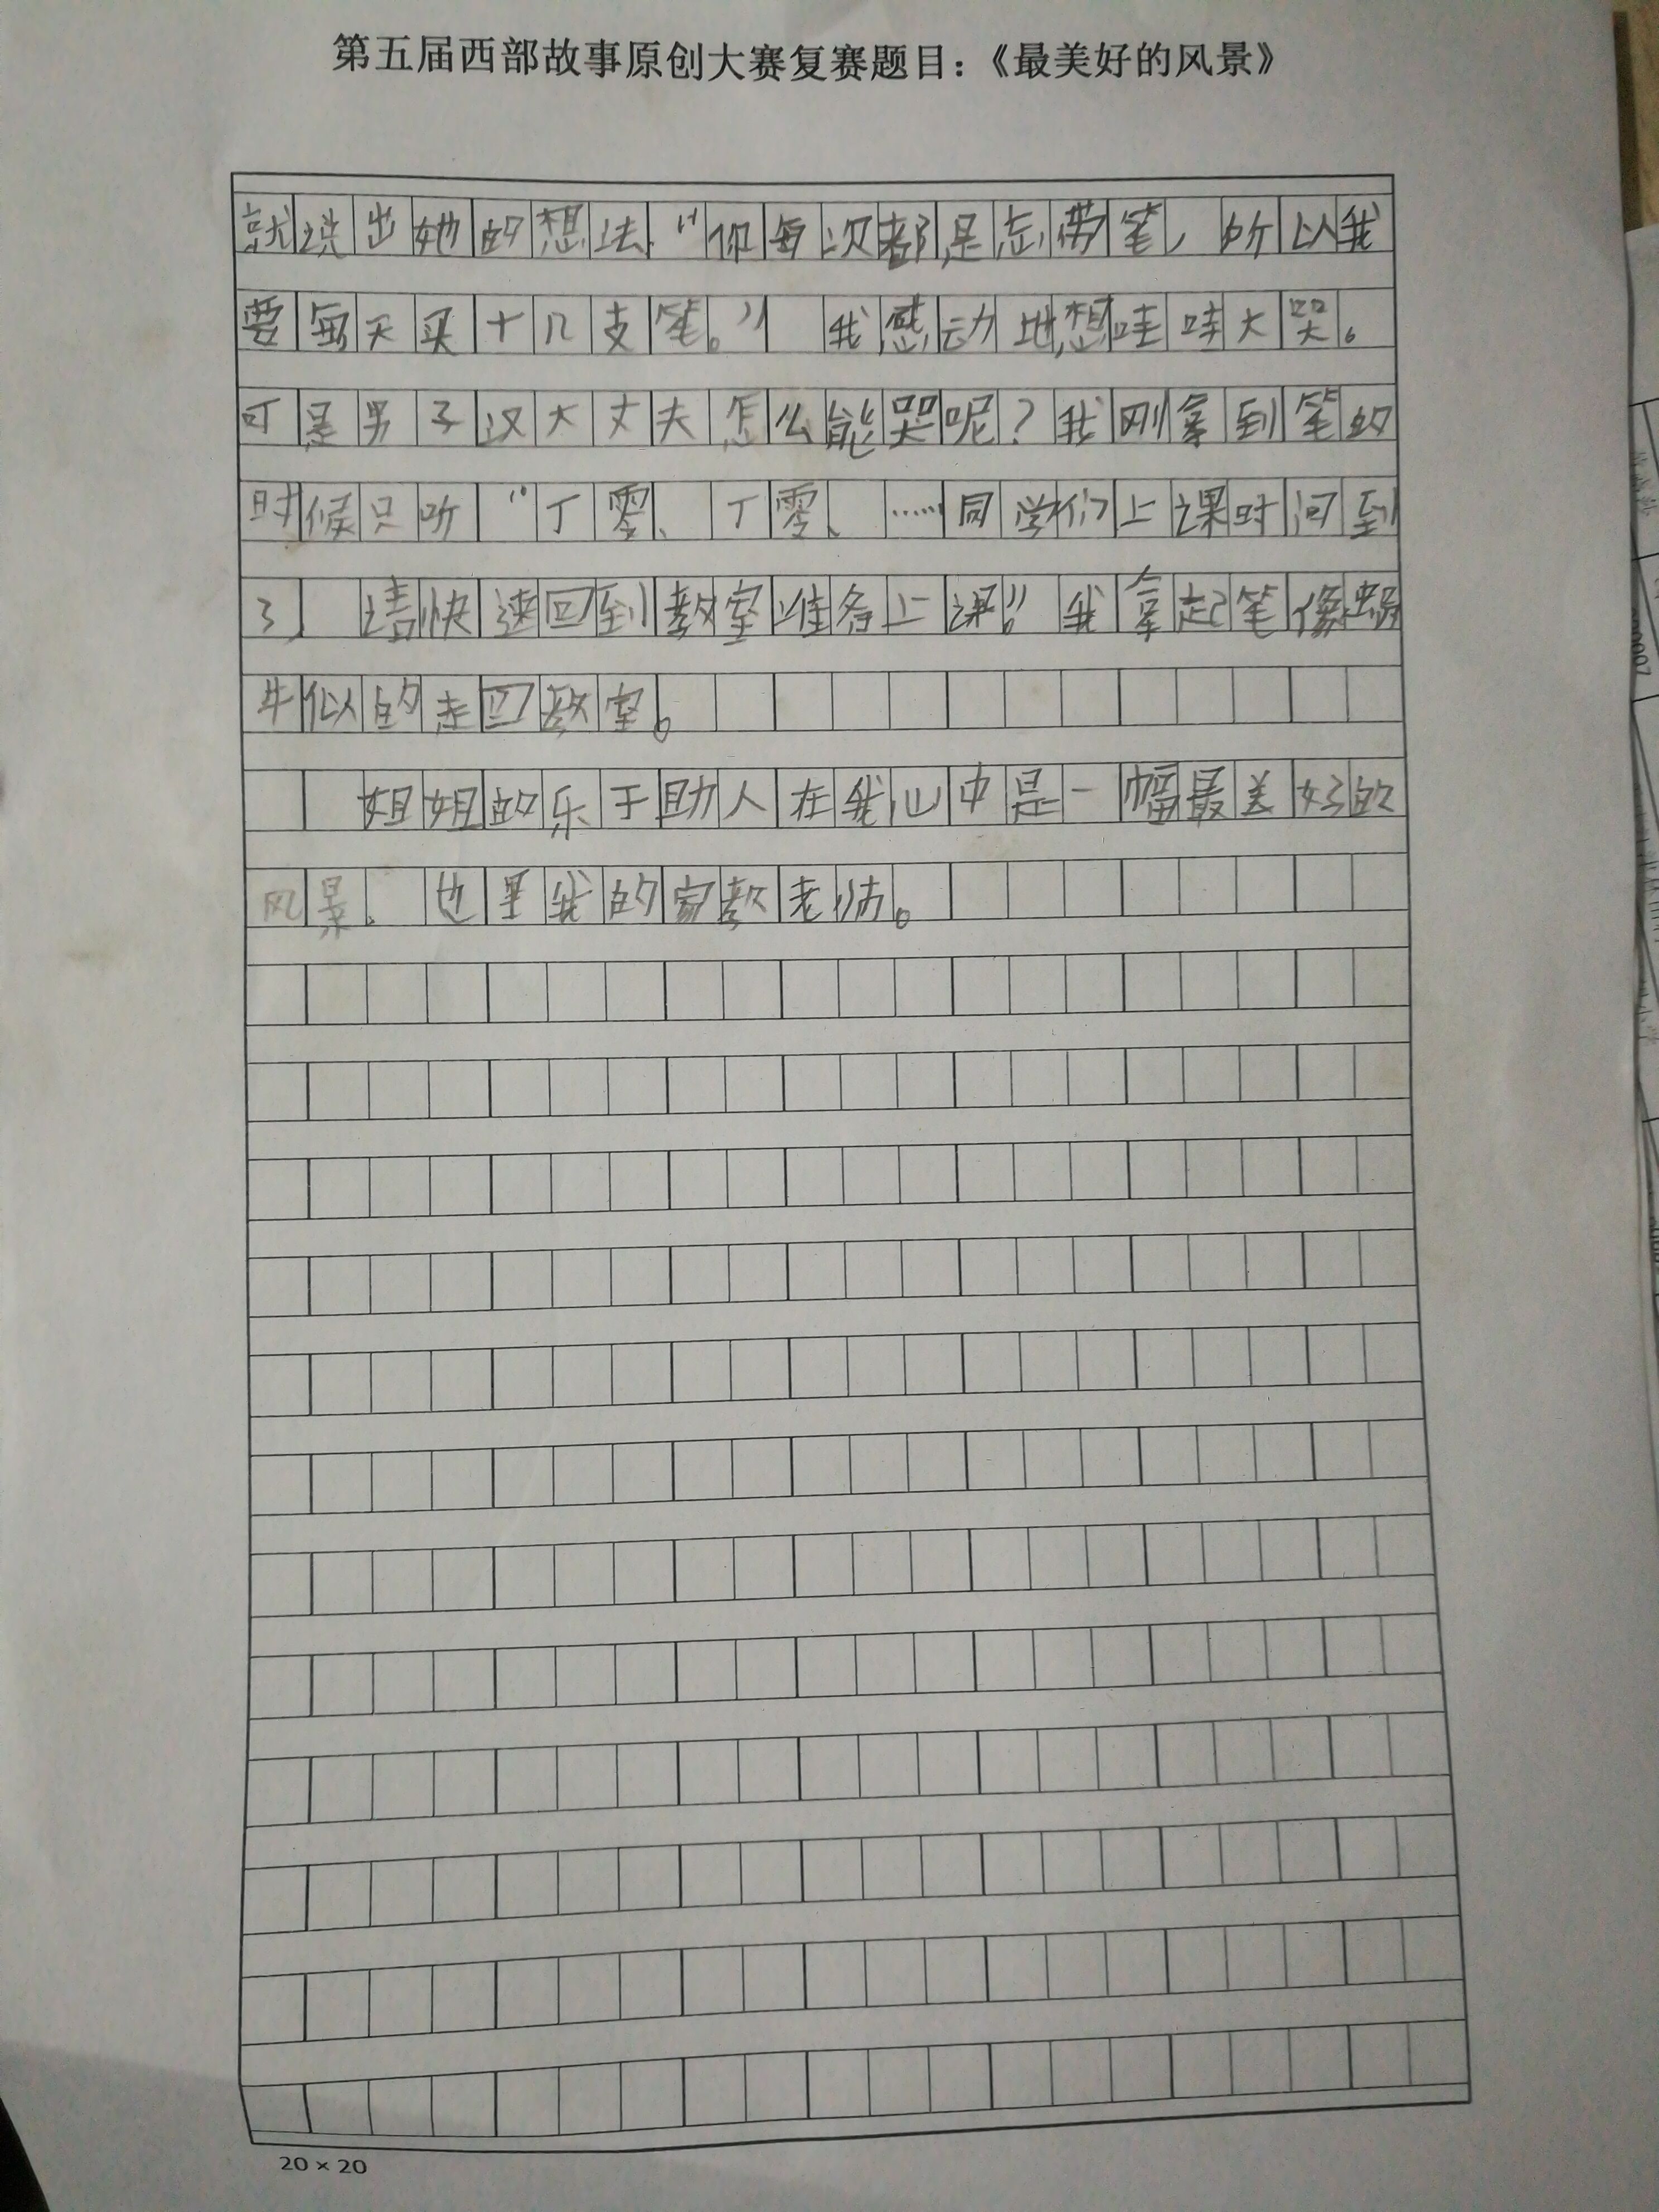 第五届西部故事原创大赛复赛题目：《最美好的风景》
就说出她的想法、“你每次都是忘带笔，所以我
要每天买十几支笔。”我感动地想哇哇大哭。
可是男子汉大丈夫怎么能哭呢？我刚拿到笔的
时候只听“丁零、丁零、……同学们上课时间到
了，请快速回到教室准备上课！”我拿起笔像蜗
牛似的走回教室。
姐姐的乐于助人在我心中是一幅最美好的
风景、也是我的家教老师。
20×20